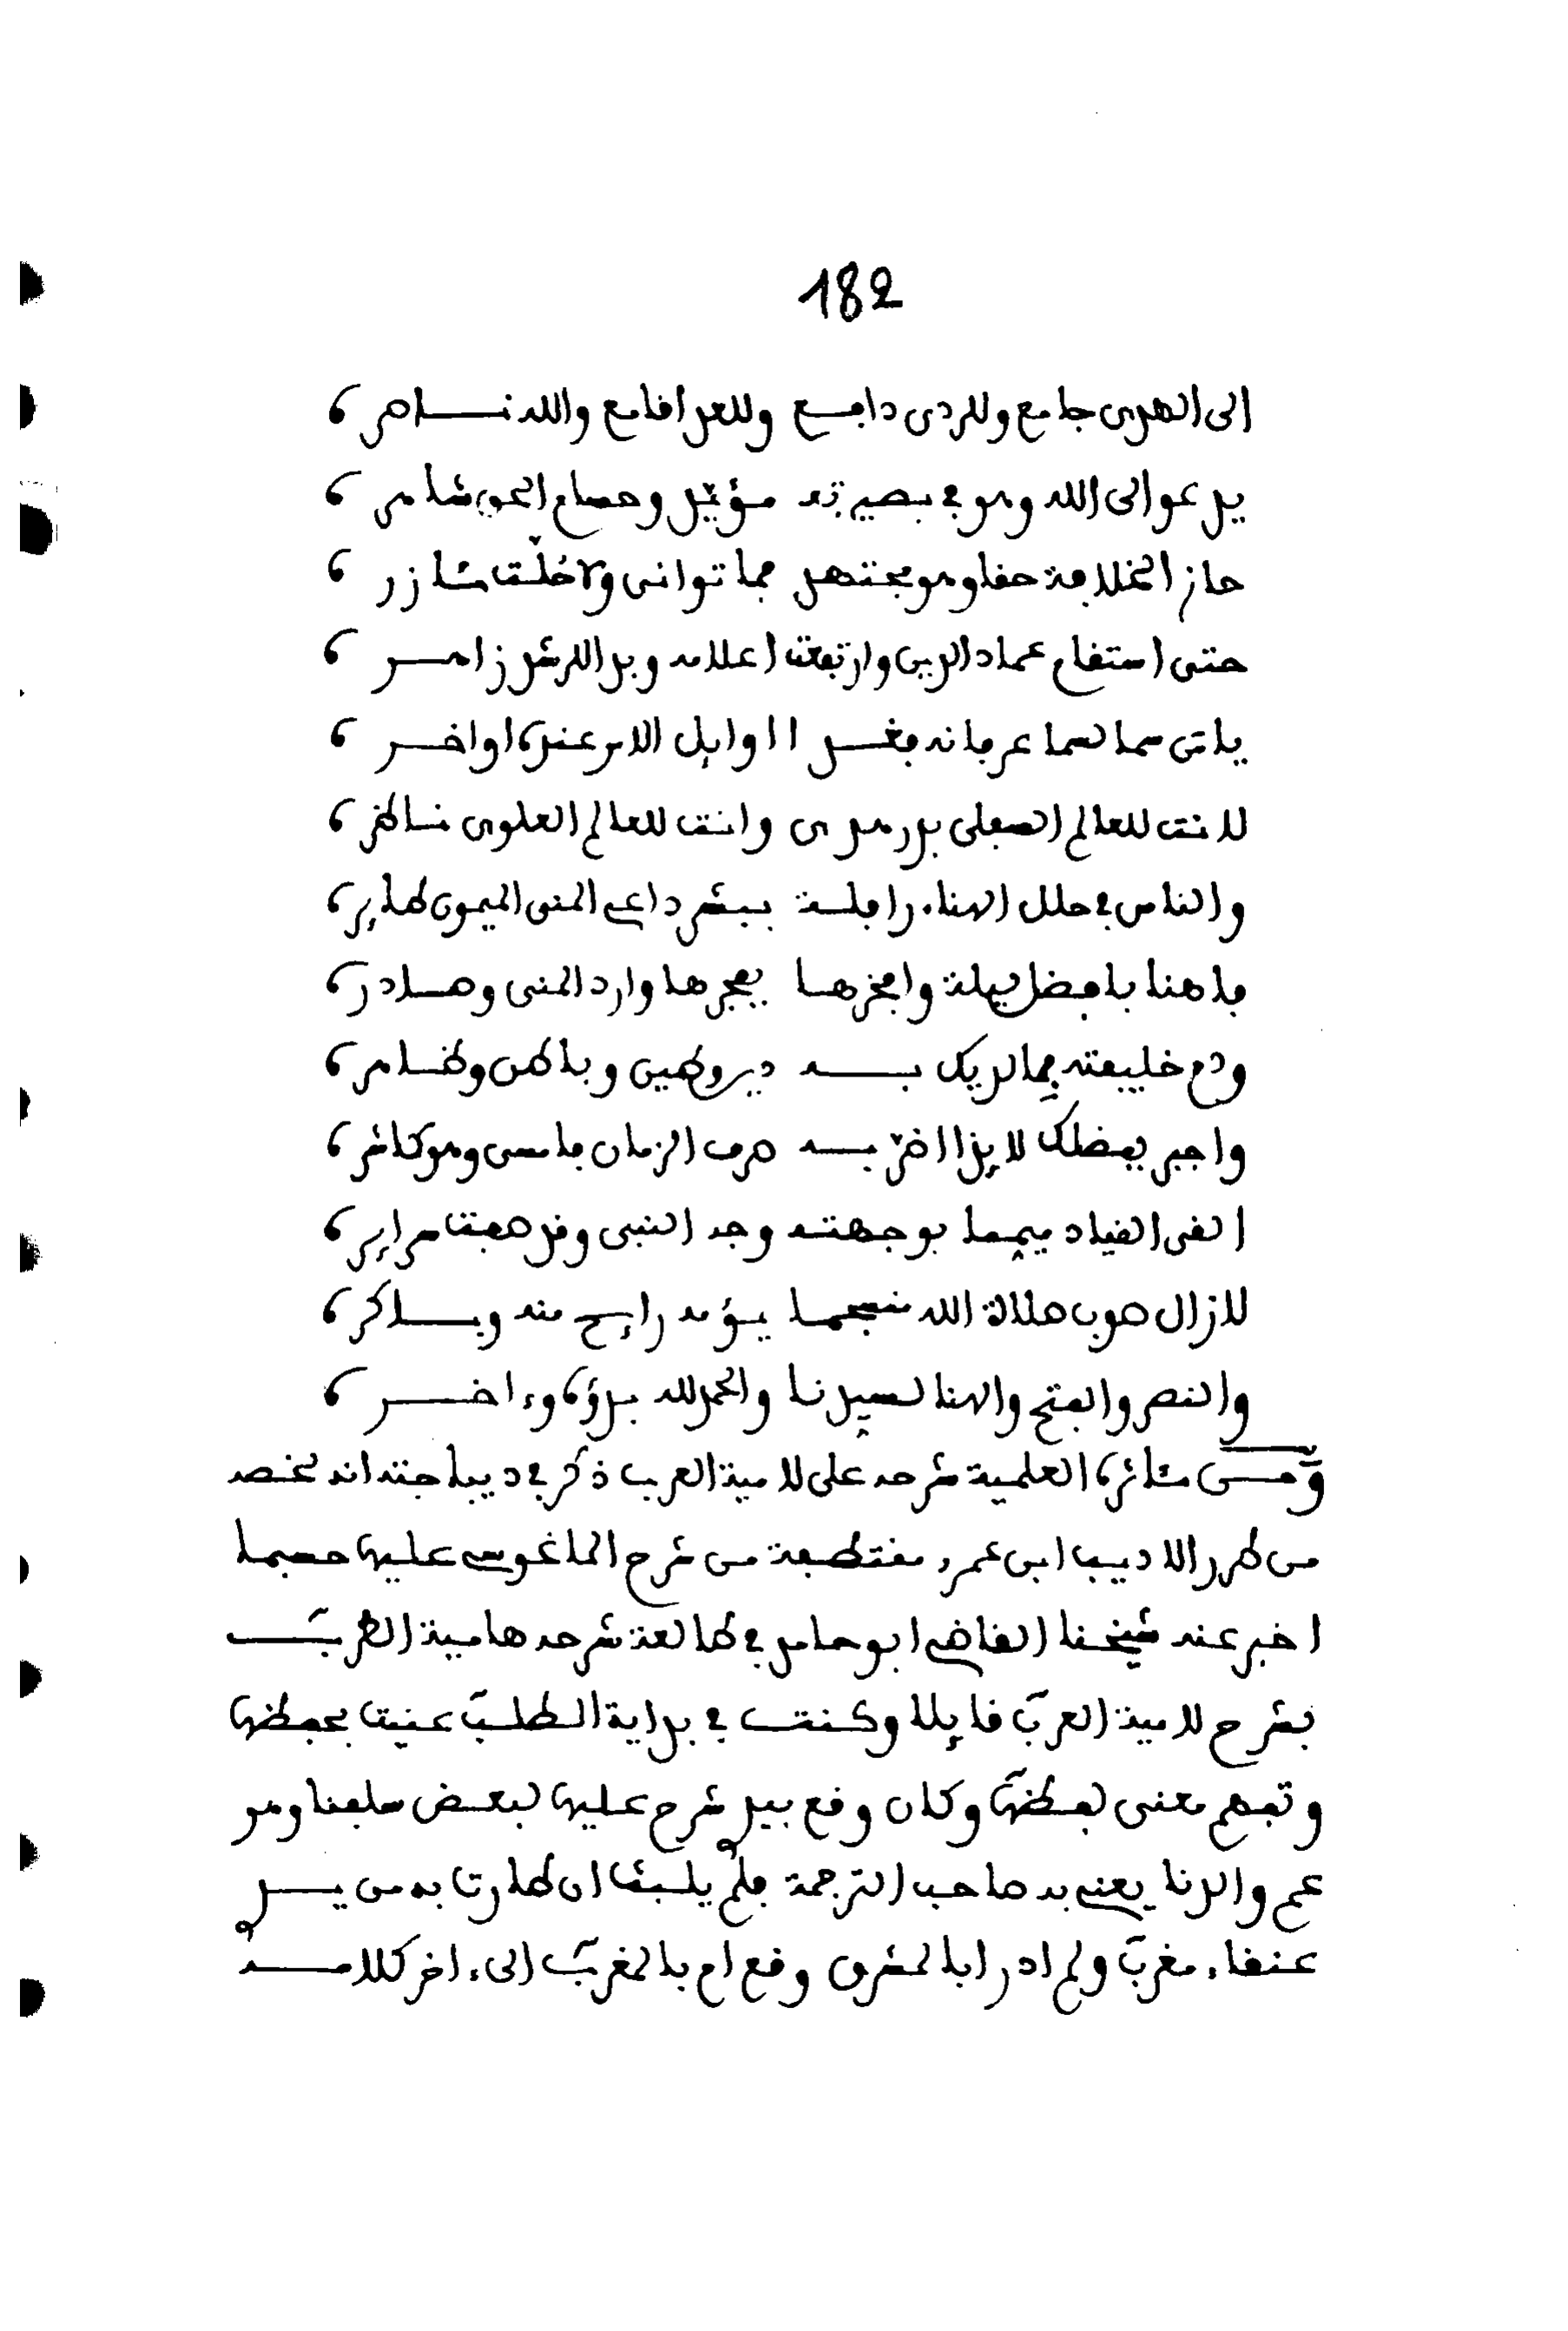 182
الى الهدى جامع وللردى دافع وللعدا قامع والله ناصر
يدعو الى الله وهو في بصيرته مؤيد وحسام الحق شاهر
حاز الخلافة حقا وهو مجتهد فما توانى ولا خلت مئازر
حتى استقام عماد الدين وارتفعت اعلامه وبدا للرشد زاهر
ياتى سما لسما عرفانه فغدا اوايل الامر عنده اواخر
لانت للعالم السفلى بدر هدى وانت للعالم العلوى ناظر
والناس في حلل الهناء رافلة ببشر داعي المنى الميمون طاير
فاهنا بافضل ليلة وافخرها بفجرها وارد المنى وصادر
ودم خليفته فيما لديك به دير وطين وباطن وظاهر
واجبر بفضلك لايذا اضر به صرف الزمان فامسى وهو كاشر
القى القياد ميمما بوجهته وجه النبى وقد صفت سراير
لازال صوب صلاة الله منسجما يؤمه رايح منه وباكر
والنصر والفتح والهنا لسيدنا والحمد لله بدؤه وءاخر
ومن مئاثره العلمية شرحه على لامية العرب ذكر في ديباجته انه لخصه
من طرر الاديب ابى عمر مقتطفة من شرح الماغوسي عليها حسبما
اخبر عنه شيخنا القاضي ابو حامد في طالعة شرحه هامية الطرب
بشرح لامية العرب قايلا وكنت في بداية الطلب عنيت بحفظها
وتفهم معنى لفظها وكان وقع بيد شرح عليها لبعض سلفنا وهو
عم والدنا يعني به صاحب الترجمة فلم يلبث ان طارت به من يد
عنقاء مغرب ولم ادر ابالمشرق وقع ام بالمغرب الى ءاخر كلامه